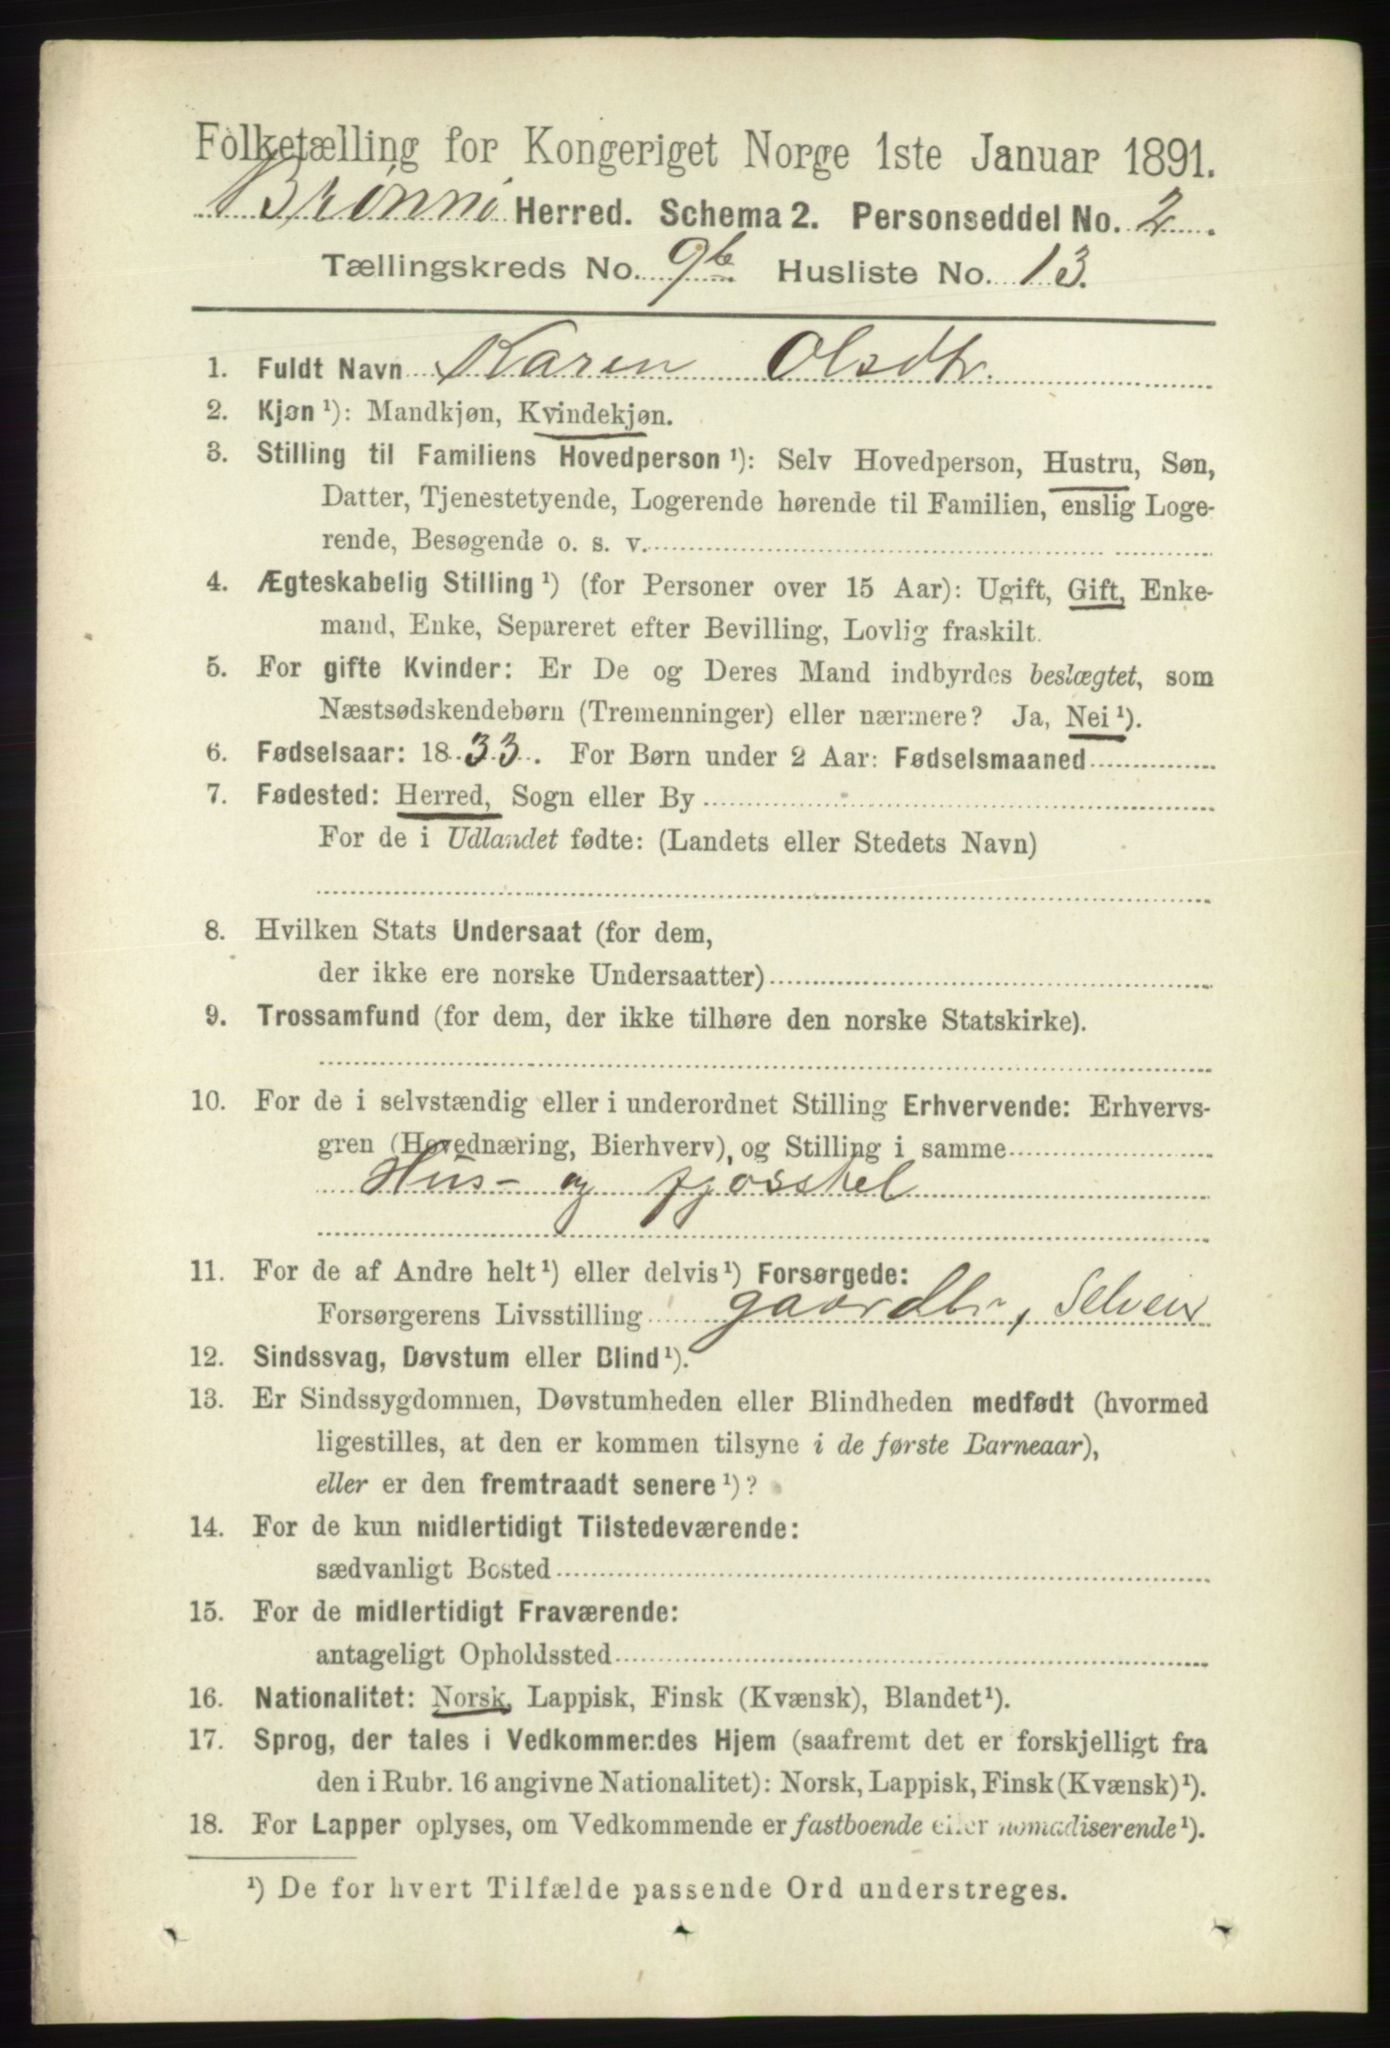 Folketælling for Kongeriget Norge 1ste Januar 1891.
Brønnø Herred. Schema 2. Personseddel No. 2.
Tællingskreds No. 9b. Husliste No. 13.
1. Fuldt Navn Karen Olsdtr.
2. Kjøn¹): Mandkjøn, Kvindekjøn.
3. Stilling til Familiens Hovedperson¹): Selv Hovedperson, Hustru, Søn,
Datter, Tjenestetyende, Logerende hørende til Familien, enslig Loge-
rende, Besøgende o. s. v.
4. Ægteskabelig Stilling¹) (for Personer over 15 Aar): Ugift, Gift, Enke-
mand, Enke, Separeret efter Bevilling, Lovlig fraskilt.
5. For gifte Kvinder: Er De og Deres Mand indbyrdes beslægtet, som
Næstsødskendebørn (Tremenninger) eller nærmere? Ja, Nei¹).
6. Fødselsaar: 1833. For Børn under 2 Aar: Fødselsmaaned
7. Fødested: Herred, Sogn eller By
For de i Udlandet fødte: (Landets eller Stedets Navn)
8. Hvilken Stats Undersaat (for dem,
der ikke ere norske Undersaatter)
9. Trossamfund (for dem, der ikke tilhøre den norske Statskirke).
10. For de i selvstændig eller i underordnet Stilling Erhvervende: Erhvervs-
gren (Hovednæring, Bierhverv), og Stilling i samme
Hus- og fjøsstel
11. For de af Andre helt¹) eller delvis¹) Forsørgede:
Forsørgerens Livsstilling gaardbr, Selveier
12. Sindssvag, Døvstum eller Blind¹).
13. Er Sindssygdommen, Døvstumheden eller Blindheden medfødt (hvormed
ligestilles, at den er kommen tilsyne i de første Barneaar),
eller er den fremtraadt senere¹)?
14. For de kun midlertidigt Tilstedeværende:
sædvanligt Bosted
15. For de midlertidigt Fraværende:
antageligt Opholdssted
16. Nationalitet: Norsk, Lappisk, Finsk (Kvænsk), Blandet¹).
17. Sprog, der tales i Vedkommendes Hjem (saafremt det er forskjelligt fra
den i Rubr. 16 angivne Nationalitet): Norsk, Lappisk, Finsk (Kvænsk)¹).
18. For Lapper oplyses, om Vedkommende er fastboende eller nomadiserende¹).
¹) De for hvert Tilfælde passende Ord understreges.